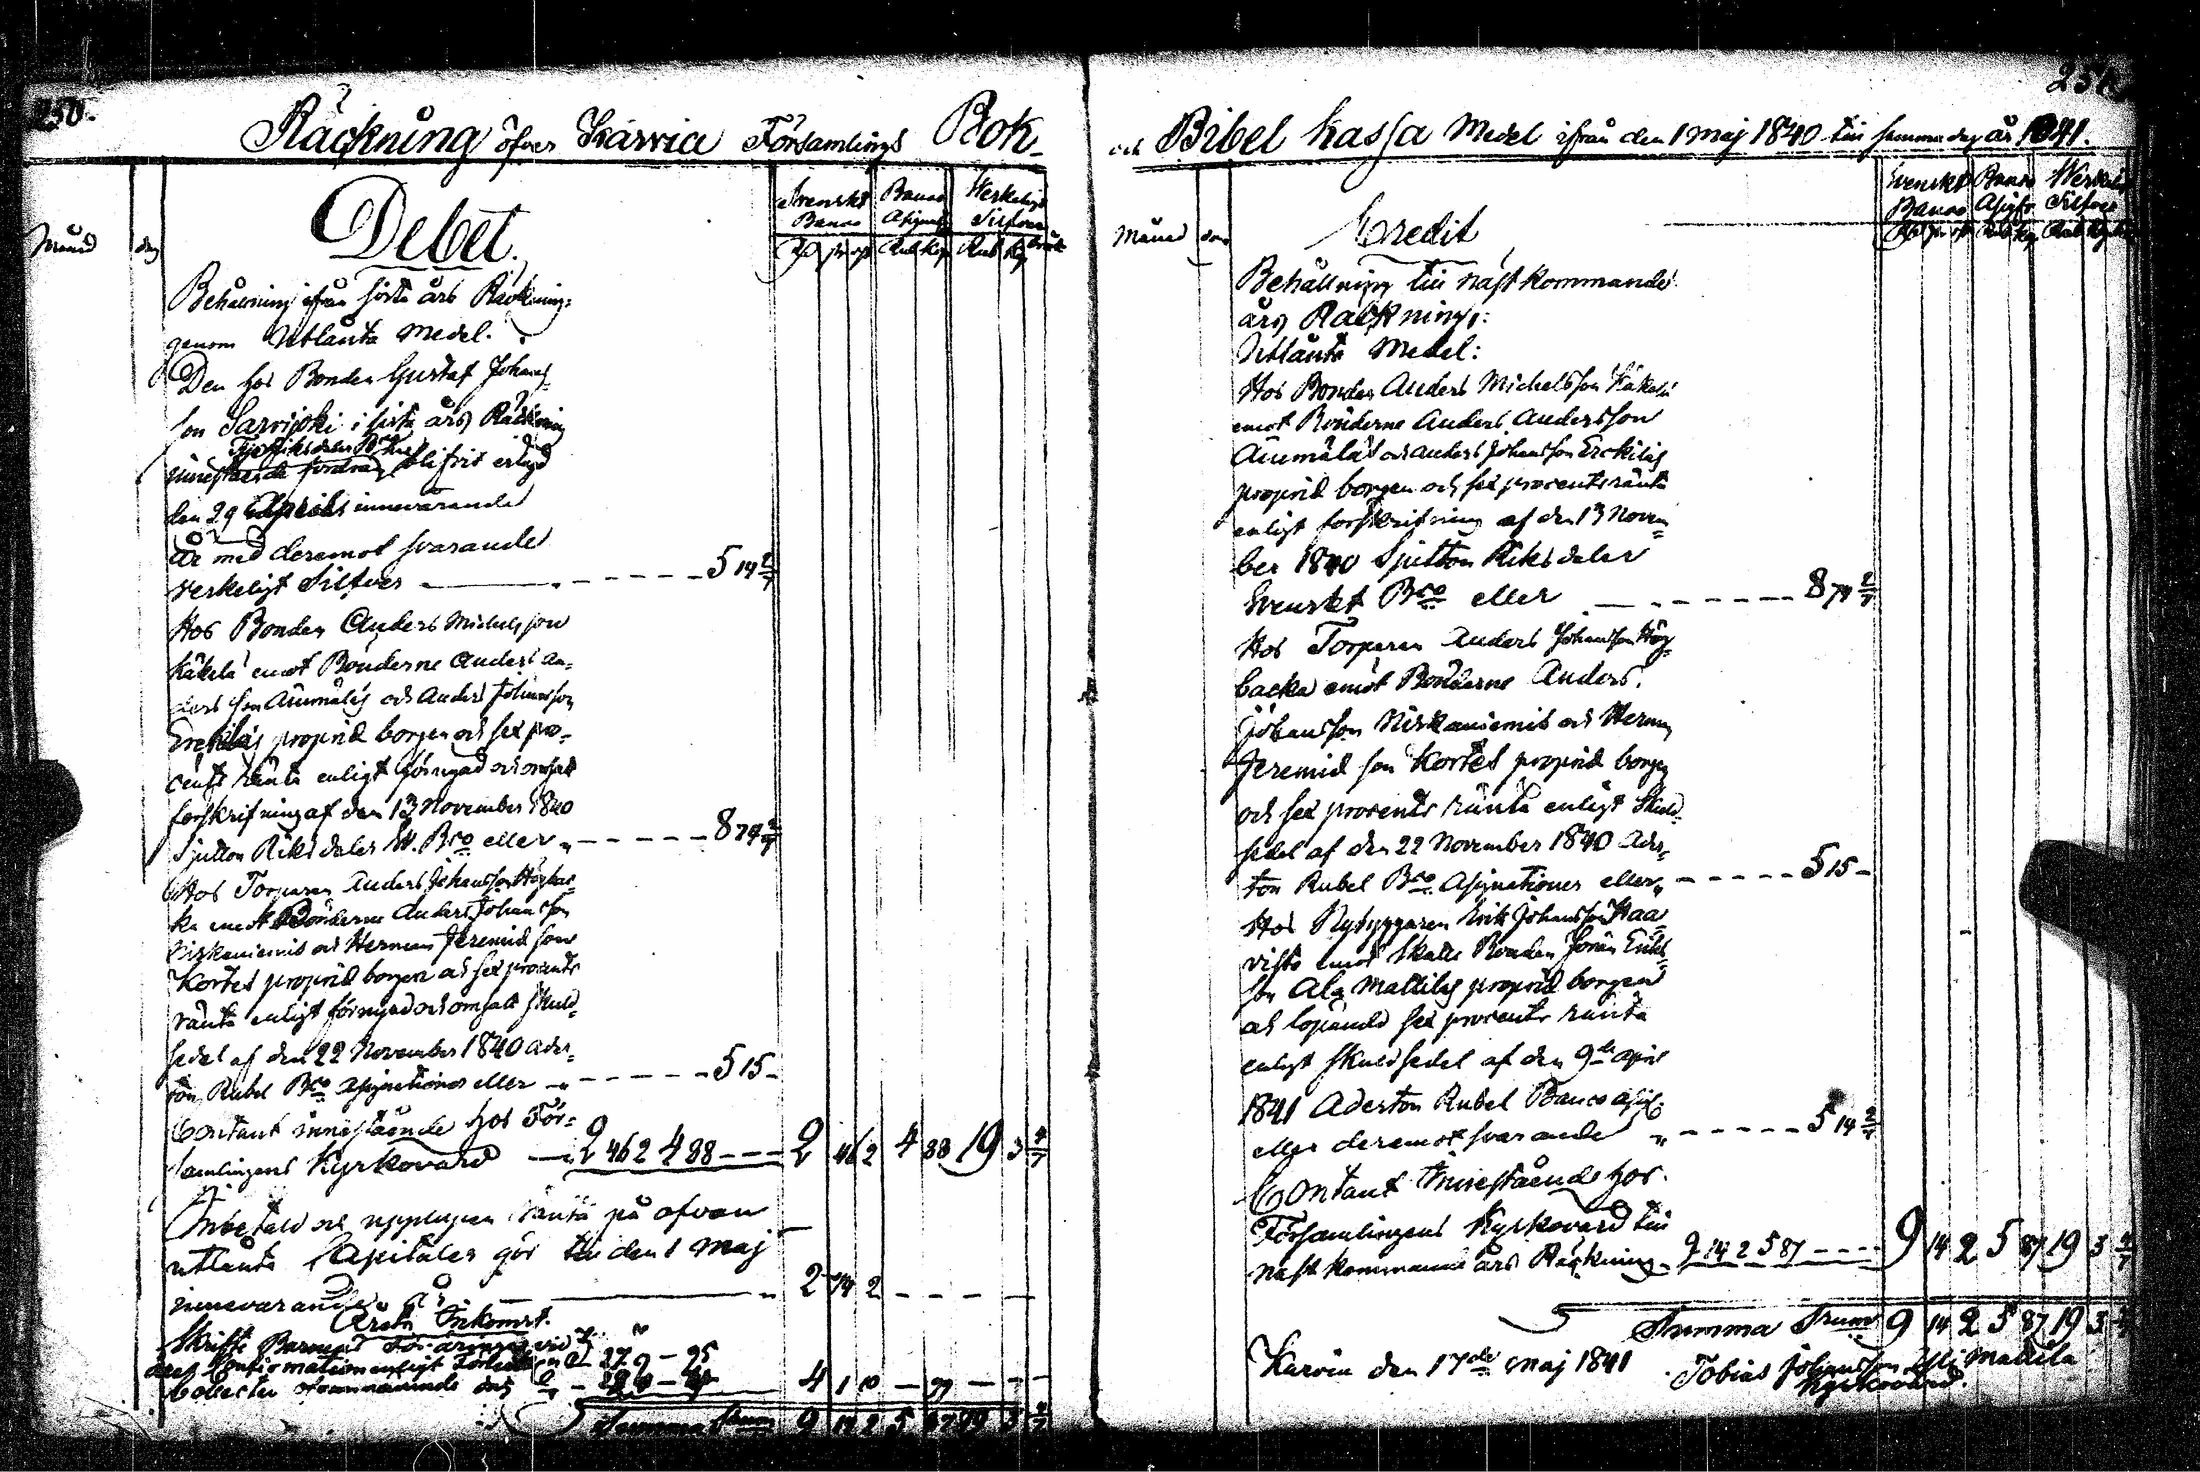 250.
Räckning öfver Karvia Församlings Bok
Månad dag
Debet.
Svenskt Banco
Banco
Werkeligt Silfver
Rub Kop
Behållning ifrån sista års Räckning:
genom Utlånta Medel.
Den hos Bonden Gustaf Johans
son Sarvijoki i sista års Räckning
blifvit erlagd
den 29 Aprilis innevarande
år med deremot svarande
verkeligt Silfver 5 14 2/7
Hos Bonden Anders Michelsson
Käkelä emot Bönderne Anders An-
ders son Aumälas och Anders Johansson
Erckiläs proprié borgen och sex pro-
cents ränta enligt förnyad och omsatt
förskrifning af den 13 November 1840
Sjutton Riksdaler Sv. Bco eller 8 74 2/7
Hos Torparen Anders Johansson Högbac
ka emot Bönderne Anders Johansson
Niskaniemis och Herman Jeremiæ son
Kortes proprié borgen och sex procents
ränta enligt förnyad och omsatt skuld-
sedel af den 22 November 1840 Ader-
ton Rubel Bco Asignationer eller 5 15 -
Contant innestående hos För-
samlingens Kyrkovärd 2 46 2 4 88 2 46 2 4 88 19 3 4/7
Obetald och upplupen ränta på ofvan
utlånta Capitaler gör till den 1 Maj
innevarande år 2 14 2
Årets Inkomst.
Skrifte Barnens Föräringar vid
deras Confirmation enligt
Collecter 4 1 10 99
Summa Summ 9 14 2 5 87 19 3 4/7
251.
och Bibel Kassa Medel ifrån den 1 Maj 1840 till samma dag år 1841.
Månad dag
Credit
Svenskt Banco
Banco
Werkeligt Silfver
Behållning till näst kommande
års Räckning:
Utlånta Medel:
Hos Bonden Anders Michelsson Käkelä
emot Bönderne Anders Andersson
Aumäläs och Anders Johansson Erckiläs
proprié borgen och sex procents ränta
enligt förskrifning af den 13 Novem
ber 1840 Sjutton Riksdaler
Svenskt Bco eller 8 74 2/7
Hos Torparen Anders Johansson Hög-
backa emot Bönderne Anders
Johansson Niskaniemis och Herman
Jeremiæ son Kortes proprié borgen
och sex procents ränta enligt Skuld-
sedel af den 22 November 1840 Ader-
ton Rubel Bco Asignationer eller 5 15 -
Hos Nybyggaren Erik Johansson Haa
visto emot Skatte Bonden Jonas Eriks
son Ala Mattilas proprié borgen
och löpande sex procents ränta
enligt skuldsedel af den 9de April
1841 Aderton Rubel Banco Asig:
eller deremot svarande 5 14 2/7
Contant Innestående hos
Församlingens Kyrkovärd till
näst kommande års Räckning 9 14 2 5 87 9 14 2 5 87 19 3 4/7
Summa Summ 9 14 2 5 87 19 3 4/7
Karvia den 17de Maj 1841 Tobias Johansson Yli Mattila
Kyrkovärd.